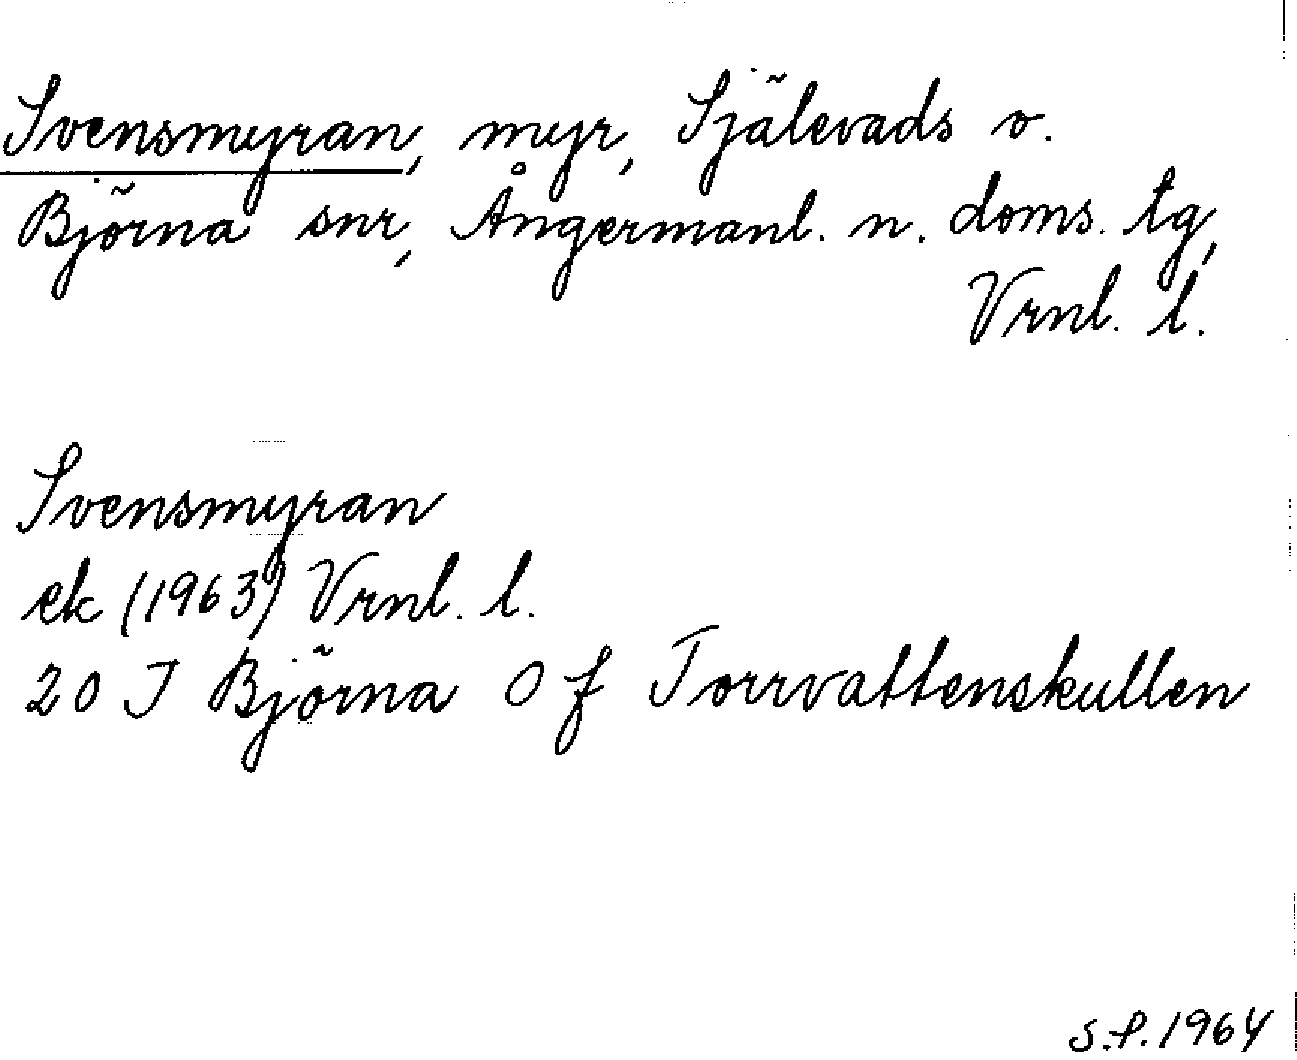 Svensmyran, myr, Själevads o.
Björna snr, Ångermanl. n. doms. tg,
Vrnl. l.
Svensmyran
ek (1963) Vrnl. l.
20 I Björna O f Torrvattenskullen
S.P. 1964